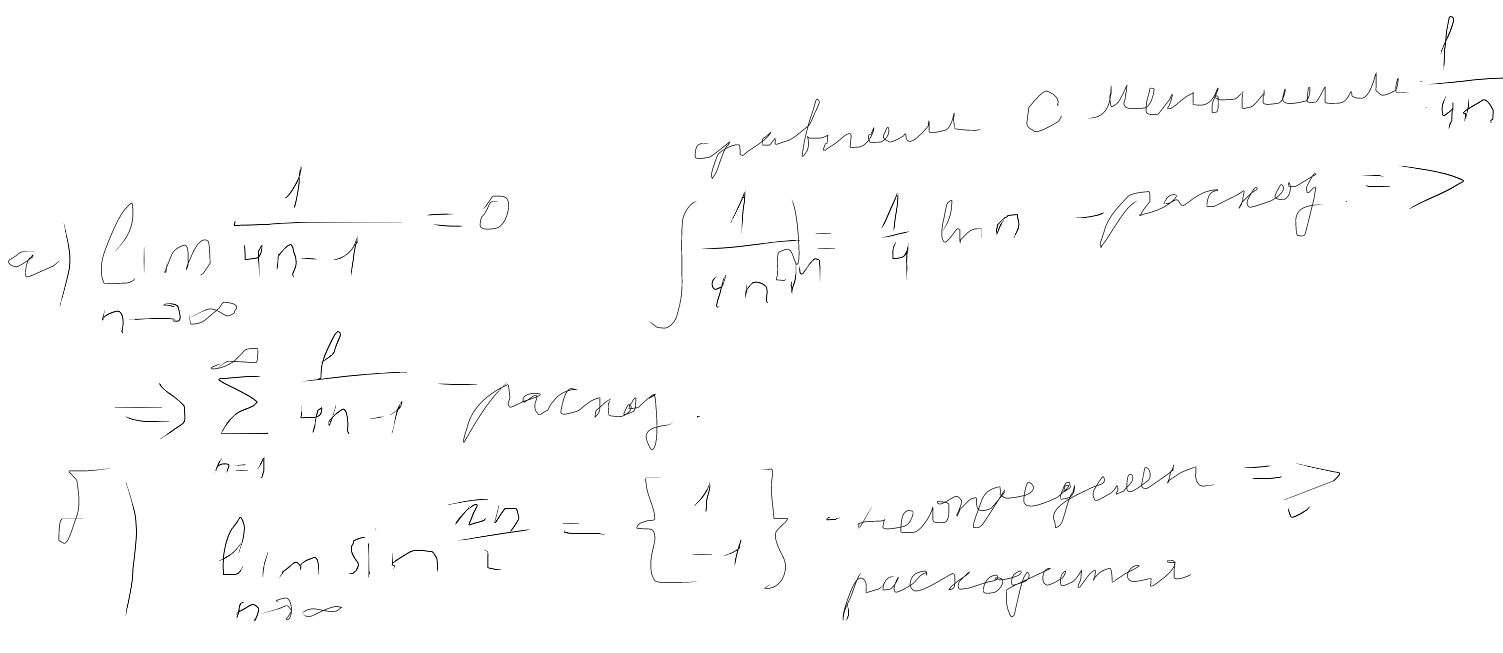 сравним с меньшим 1/(4n)
а) lim_{n→∞} 1/(4n-1) = 0
∫ 1/(4n) dn = 1/4 ln n - расход. =>
=> ∑_{n=1}^{∞} 1/(4n-1) - расход.
б) lim_{n→∞} sin πn/2 = {1 -1} - неопределен =>
расходится